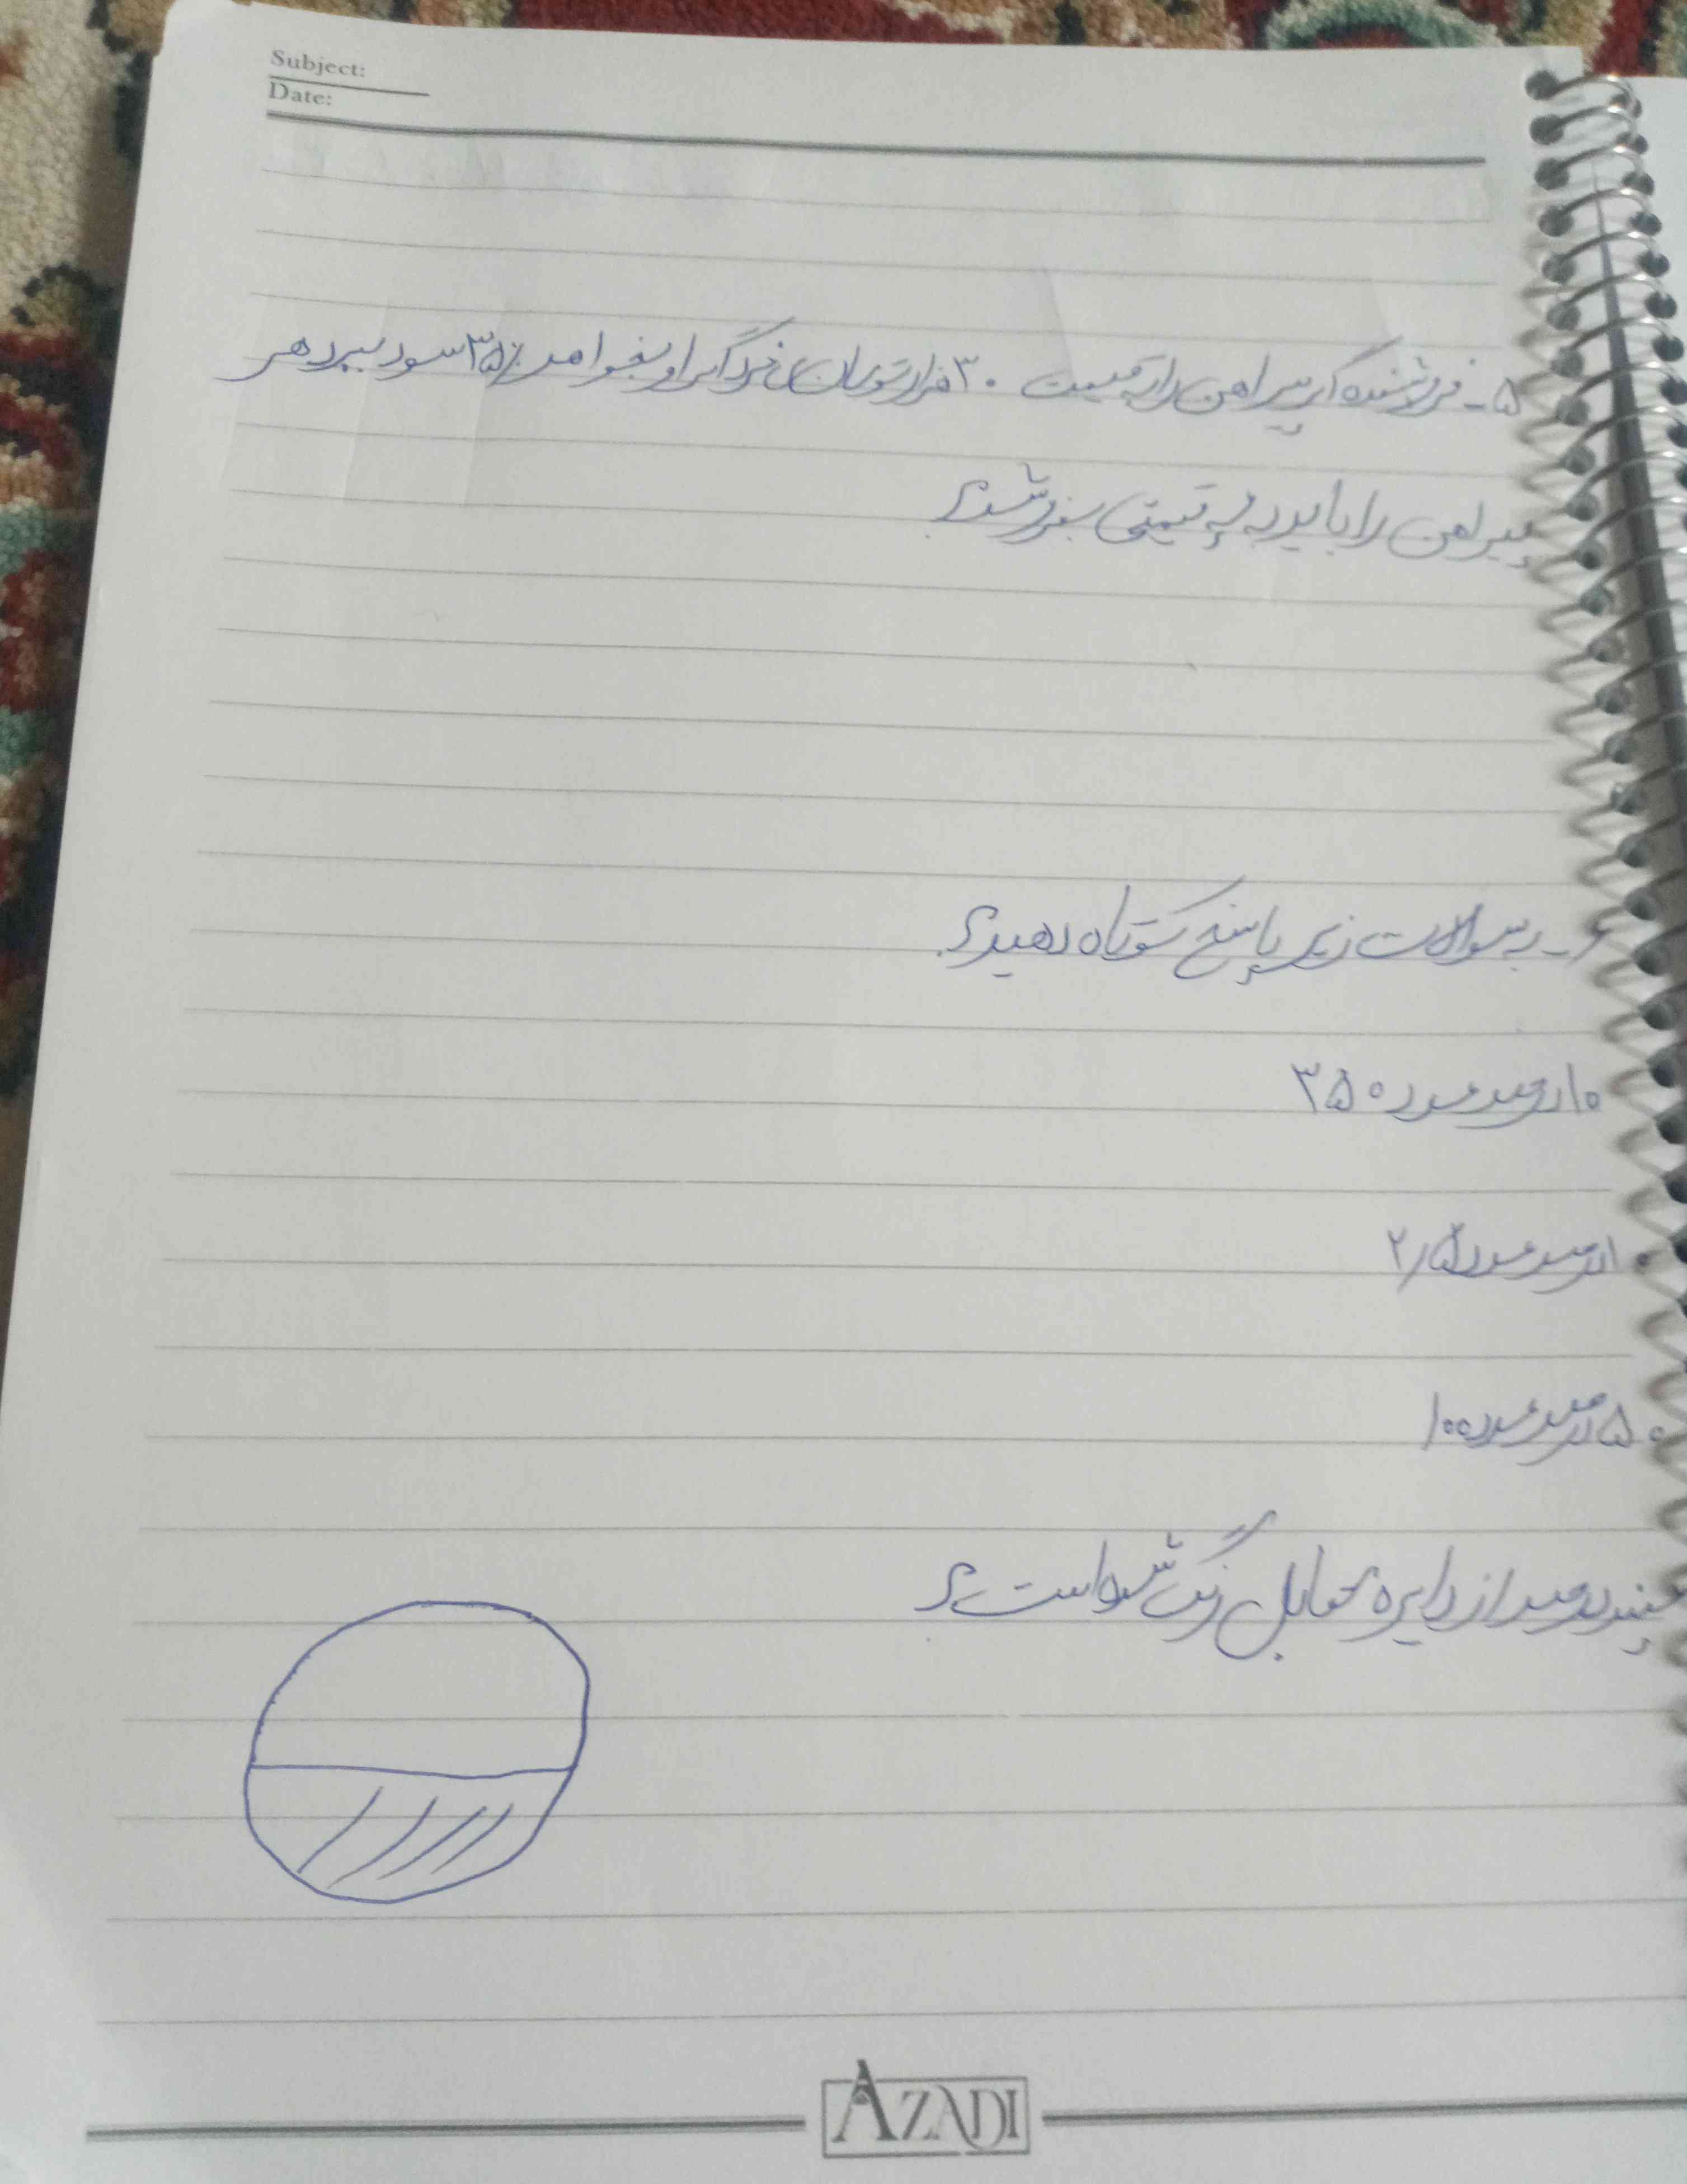 Subject:
Date:
۵ - فروشنده ای پیراهن را به قیمت ۳۰ هزار تومان می خرد اگر او بخواهد ۳۵٪ سود ببرد هر
پیراهن را باید به چه قیمتی بفروشد؟
۶ - به سوالات زیر پاسخ کوتاه دهید؟
۱۰ درصد عدد ۳۵۰
۱۰ درصد عدد ۲/۵
۵۰ درصد عدد ۱۰۰
چند درصد از دایره مقابل رنگ شده است؟
AZADI